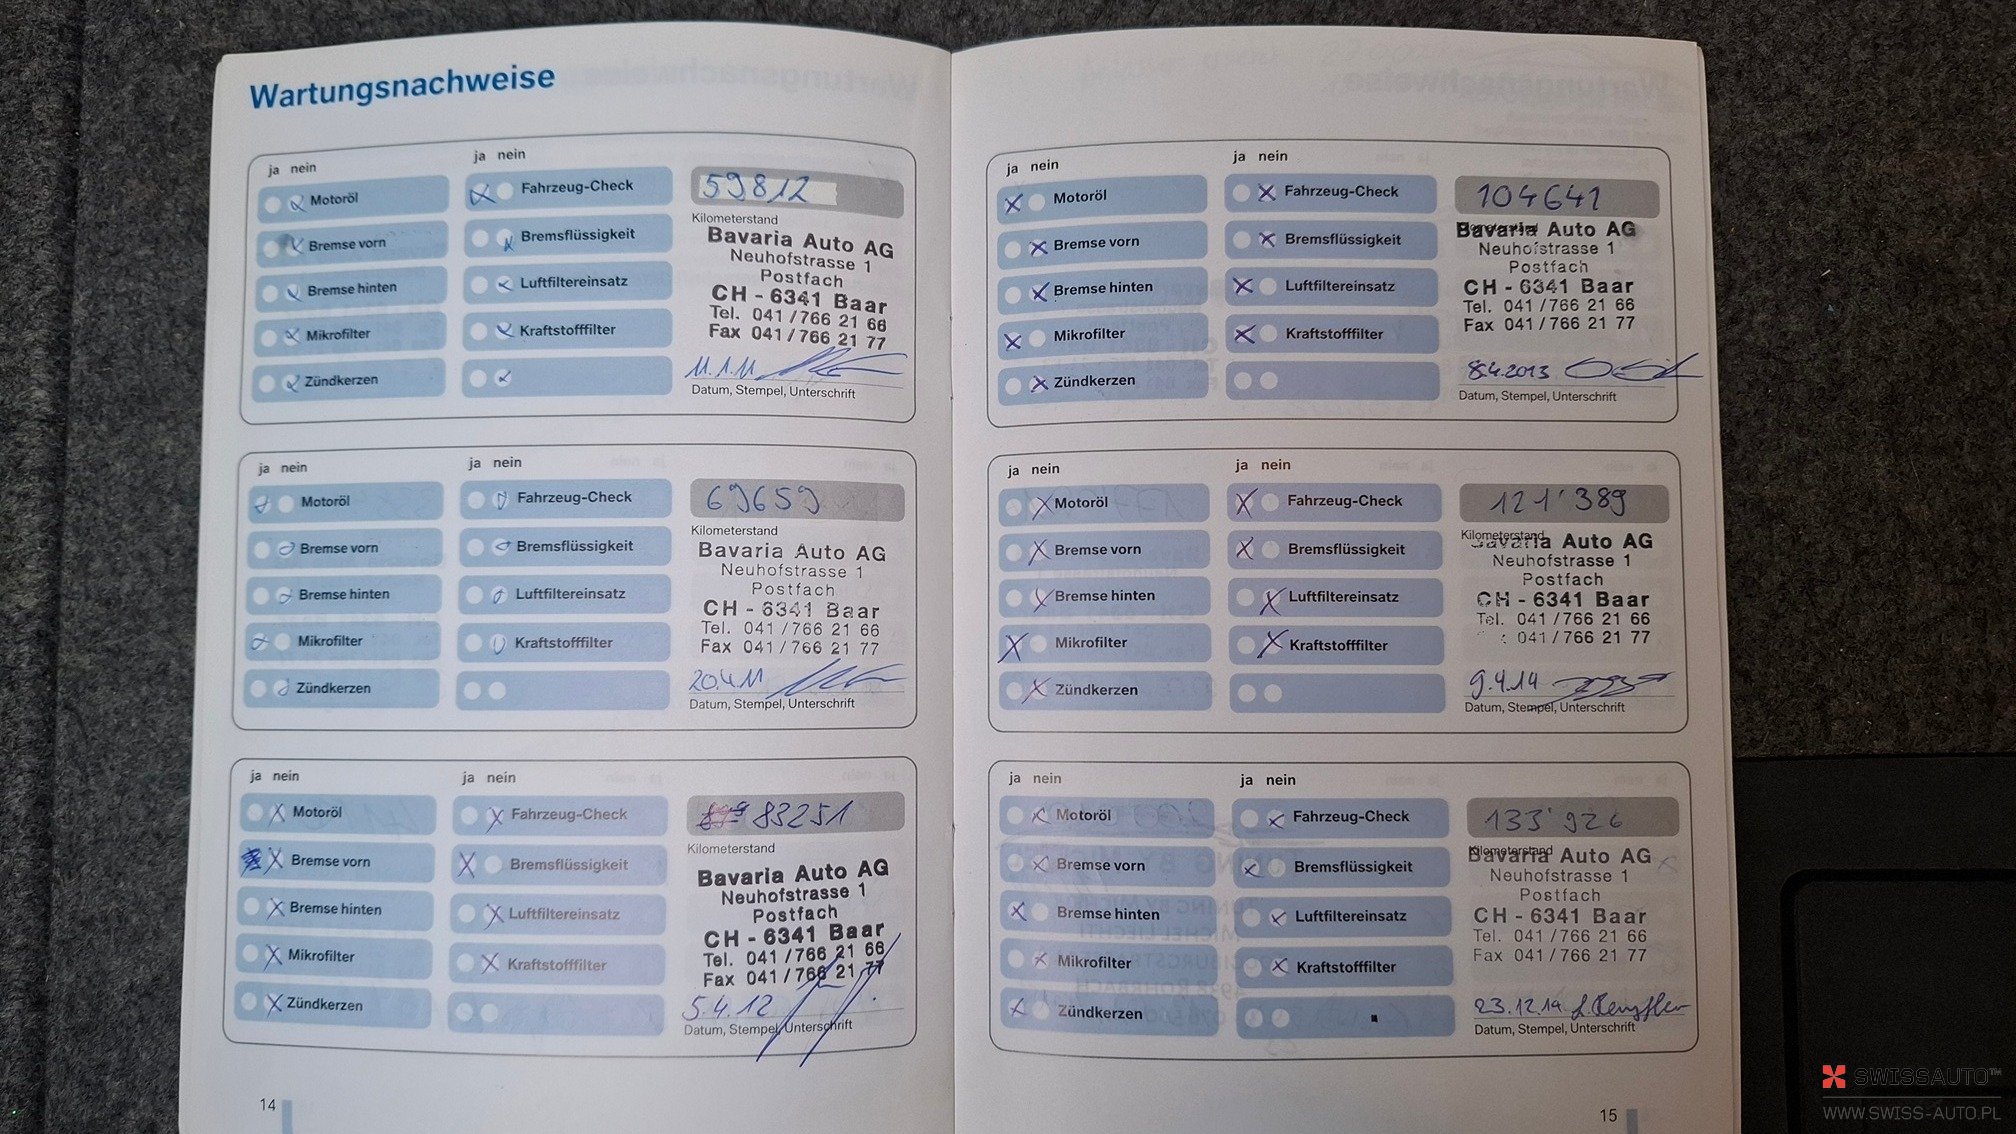 Wartungsnachweise
ja nein
ja nein
Motoröl
Bremse vorn
Bremse hinten
Mikrofilter
Zündkerzen
Fahrzeug-Check
Bremsflüssigkeit
Luftfiltereinsatz
Kraftstofffilter
59812
Kilometerstand
Bavaria Auto AG
Neuhofstrasse 1
Postfach
CH - 6341 Baar
Tel. 041/766 21 66
Fax 041/766 21 77
11.1.11
Datum, Stempel, Unterschrift
ja nein
ja nein
Motoröl
Bremse vorn
Bremse hinten
Mikrofilter
Zündkerzen
Fahrzeug-Check
Bremsflüssigkeit
Luftfiltereinsatz
Kraftstofffilter
69659
Kilometerstand
Bavaria Auto AG
Neuhofstrasse 1
Postfach
CH - 6341 Baar
Tel. 041/766 21 66
Fax 041/766 21 77
20.4.11
Datum, Stempel, Unterschrift
ja nein
ja nein
Motoröl
Bremse vorn
Bremse hinten
Mikrofilter
Zündkerzen
Fahrzeug-Check
Bremsflüssigkeit
Luftfiltereinsatz
Kraftstofffilter
83251
Kilometerstand
Bavaria Auto AG
Neuhofstrasse 1
Postfach
CH - 6341 Baar
Tel. 041/766 21 66
Fax 041/766 21 77
5.4.12
Datum, Stempel, Unterschrift
14
ja nein
ja nein
Motoröl
Bremse vorn
Bremse hinten
Mikrofilter
Zündkerzen
Fahrzeug-Check
Bremsflüssigkeit
Luftfiltereinsatz
Kraftstofffilter
104641
Kilometerstand
Bavaria Auto AG
Neuhofstrasse 1
Postfach
CH - 6341 Baar
Tel. 041/766 21 66
Fax 041/766 21 77
8.4.2013
Datum, Stempel, Unterschrift
ja nein
ja nein
Motoröl
Bremse vorn
Bremse hinten
Mikrofilter
Zündkerzen
Fahrzeug-Check
Bremsflüssigkeit
Luftfiltereinsatz
Kraftstofffilter
121'389
Kilometerstand
Bavaria Auto AG
Neuhofstrasse 1
Postfach
CH - 6341 Baar
Tel. 041/766 21 66
041/766 21 77
9.4.14
Datum, Stempel, Unterschrift
ja nein
ja nein
Motoröl
Bremse vorn
Bremse hinten
Mikrofilter
Zündkerzen
Fahrzeug-Check
Bremsflüssigkeit
Luftfiltereinsatz
Kraftstofffilter
133'926
Kilometerstand
Bavaria Auto AG
Neuhofstrasse 1
Postfach
CH - 6341 Baar
Tel. 041/766 21 66
Fax 041/766 21 77
23.12.14
Datum, Stempel, Unterschrift
15
SWISSAUTO™
WWW.SWISS-AUTO.PL